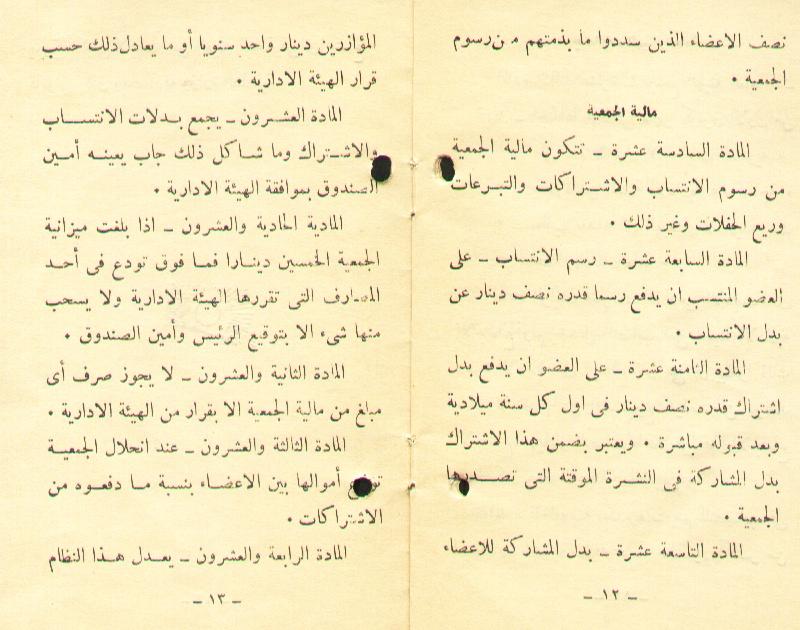 نصف الاعضاء الذين سددوا ما بذمتهم من رسوم
الجمعية ٠
مالية الجمعية
المادة السادسة عشرة ــ تتكون مالية الجمعية
من رسوم الانتساب والاشتراكات والتبرعات
وريع الحفلات وغير ذلك ٠
المادة السابعة عشرة ــ رسم الانتساب ــ على
العضو المنتسب ان يدفع رسما قدره نصف دينار عن
بدل الانتساب ٠
المادة الثامنة عشرة ــ على العضو ان يدفع بدل
اشتراك قدره نصف دينار فى اول كل سنة ميلادية
وبعد قبوله مباشرة ٠ ويعتبر بضمن هذا الاشتراك
بدل المشاركة فى النشرة الموقتة التى تصدرها
الجمعية ٠
المادة التاسعة عشرة ــ بدل المشاركة للاعضاء
ــ ١٢ ــ
المؤازرين دينار واحد سنويا أو ما يعادل ذلك حسب
قرار الهيئة الادارية ٠
المادة العشرون ــ يجمع بدلات الانتساب
والاشتراك وما شاكل ذلك جاب يعينه أمين
الصندوق بموافقة الهيئة الادارية ٠
المادية الحادية والعشرون ــ اذا بلغت ميزانية
الجمعية الخمسين دينارا فما فوق تودع فى أحد
المصارف التى تقررها الهيئة الادارية ولا يسحب
منها شىء الا بتوقيع الرئيس وأمين الصندوق ٠
المادة الثانية والعشرون ــ لا يجوز صرف أى
مبلغ من مالية الجمعية الا بقرار من الهيئة الادارية ٠
المادة الثالثة والعشرون ــ عند انحلال الجمعية
أموالها بين الاعضاء بنسبة ما دفعوه من
الاشتراكات ٠
المادة الرابعة والعشرون ــ يعدل هذا النظام
ــ ١٣ ــ